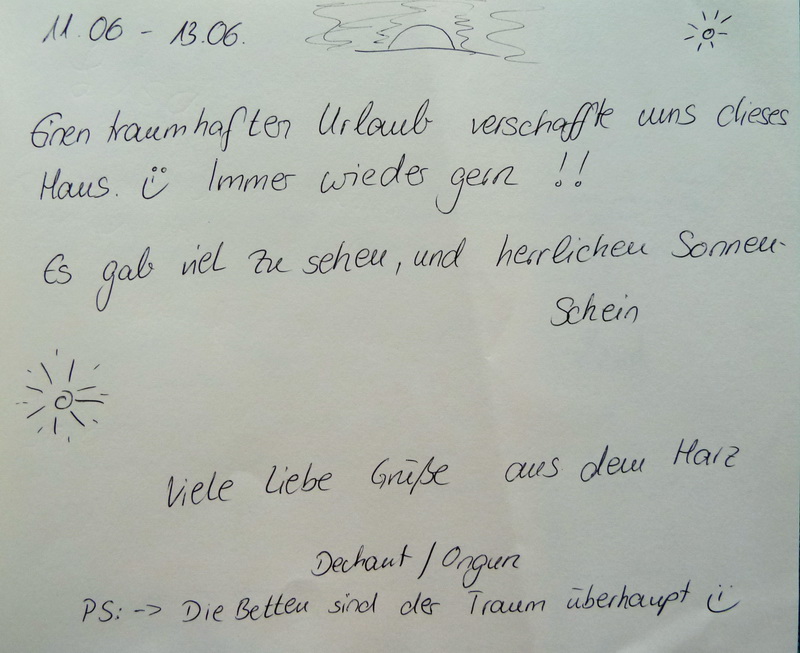 11.06 - 13.06.
Einen traumhaften Urlaub verschaffte uns dieses
Haus. Immer wieder gern !!
Es gab viel zu sehen, und herrlichen Sonnen-
Schein
Viele liebe Grüße aus dem Harz
Dechant / Ongun
PS: -> Die Betten sind der Traum überhaupt